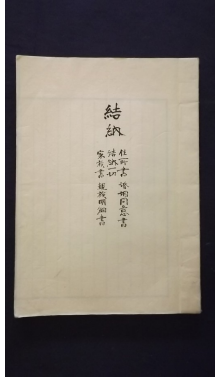 結納
住所書 婚姻同意書
結納一切
家族書 親族明細書